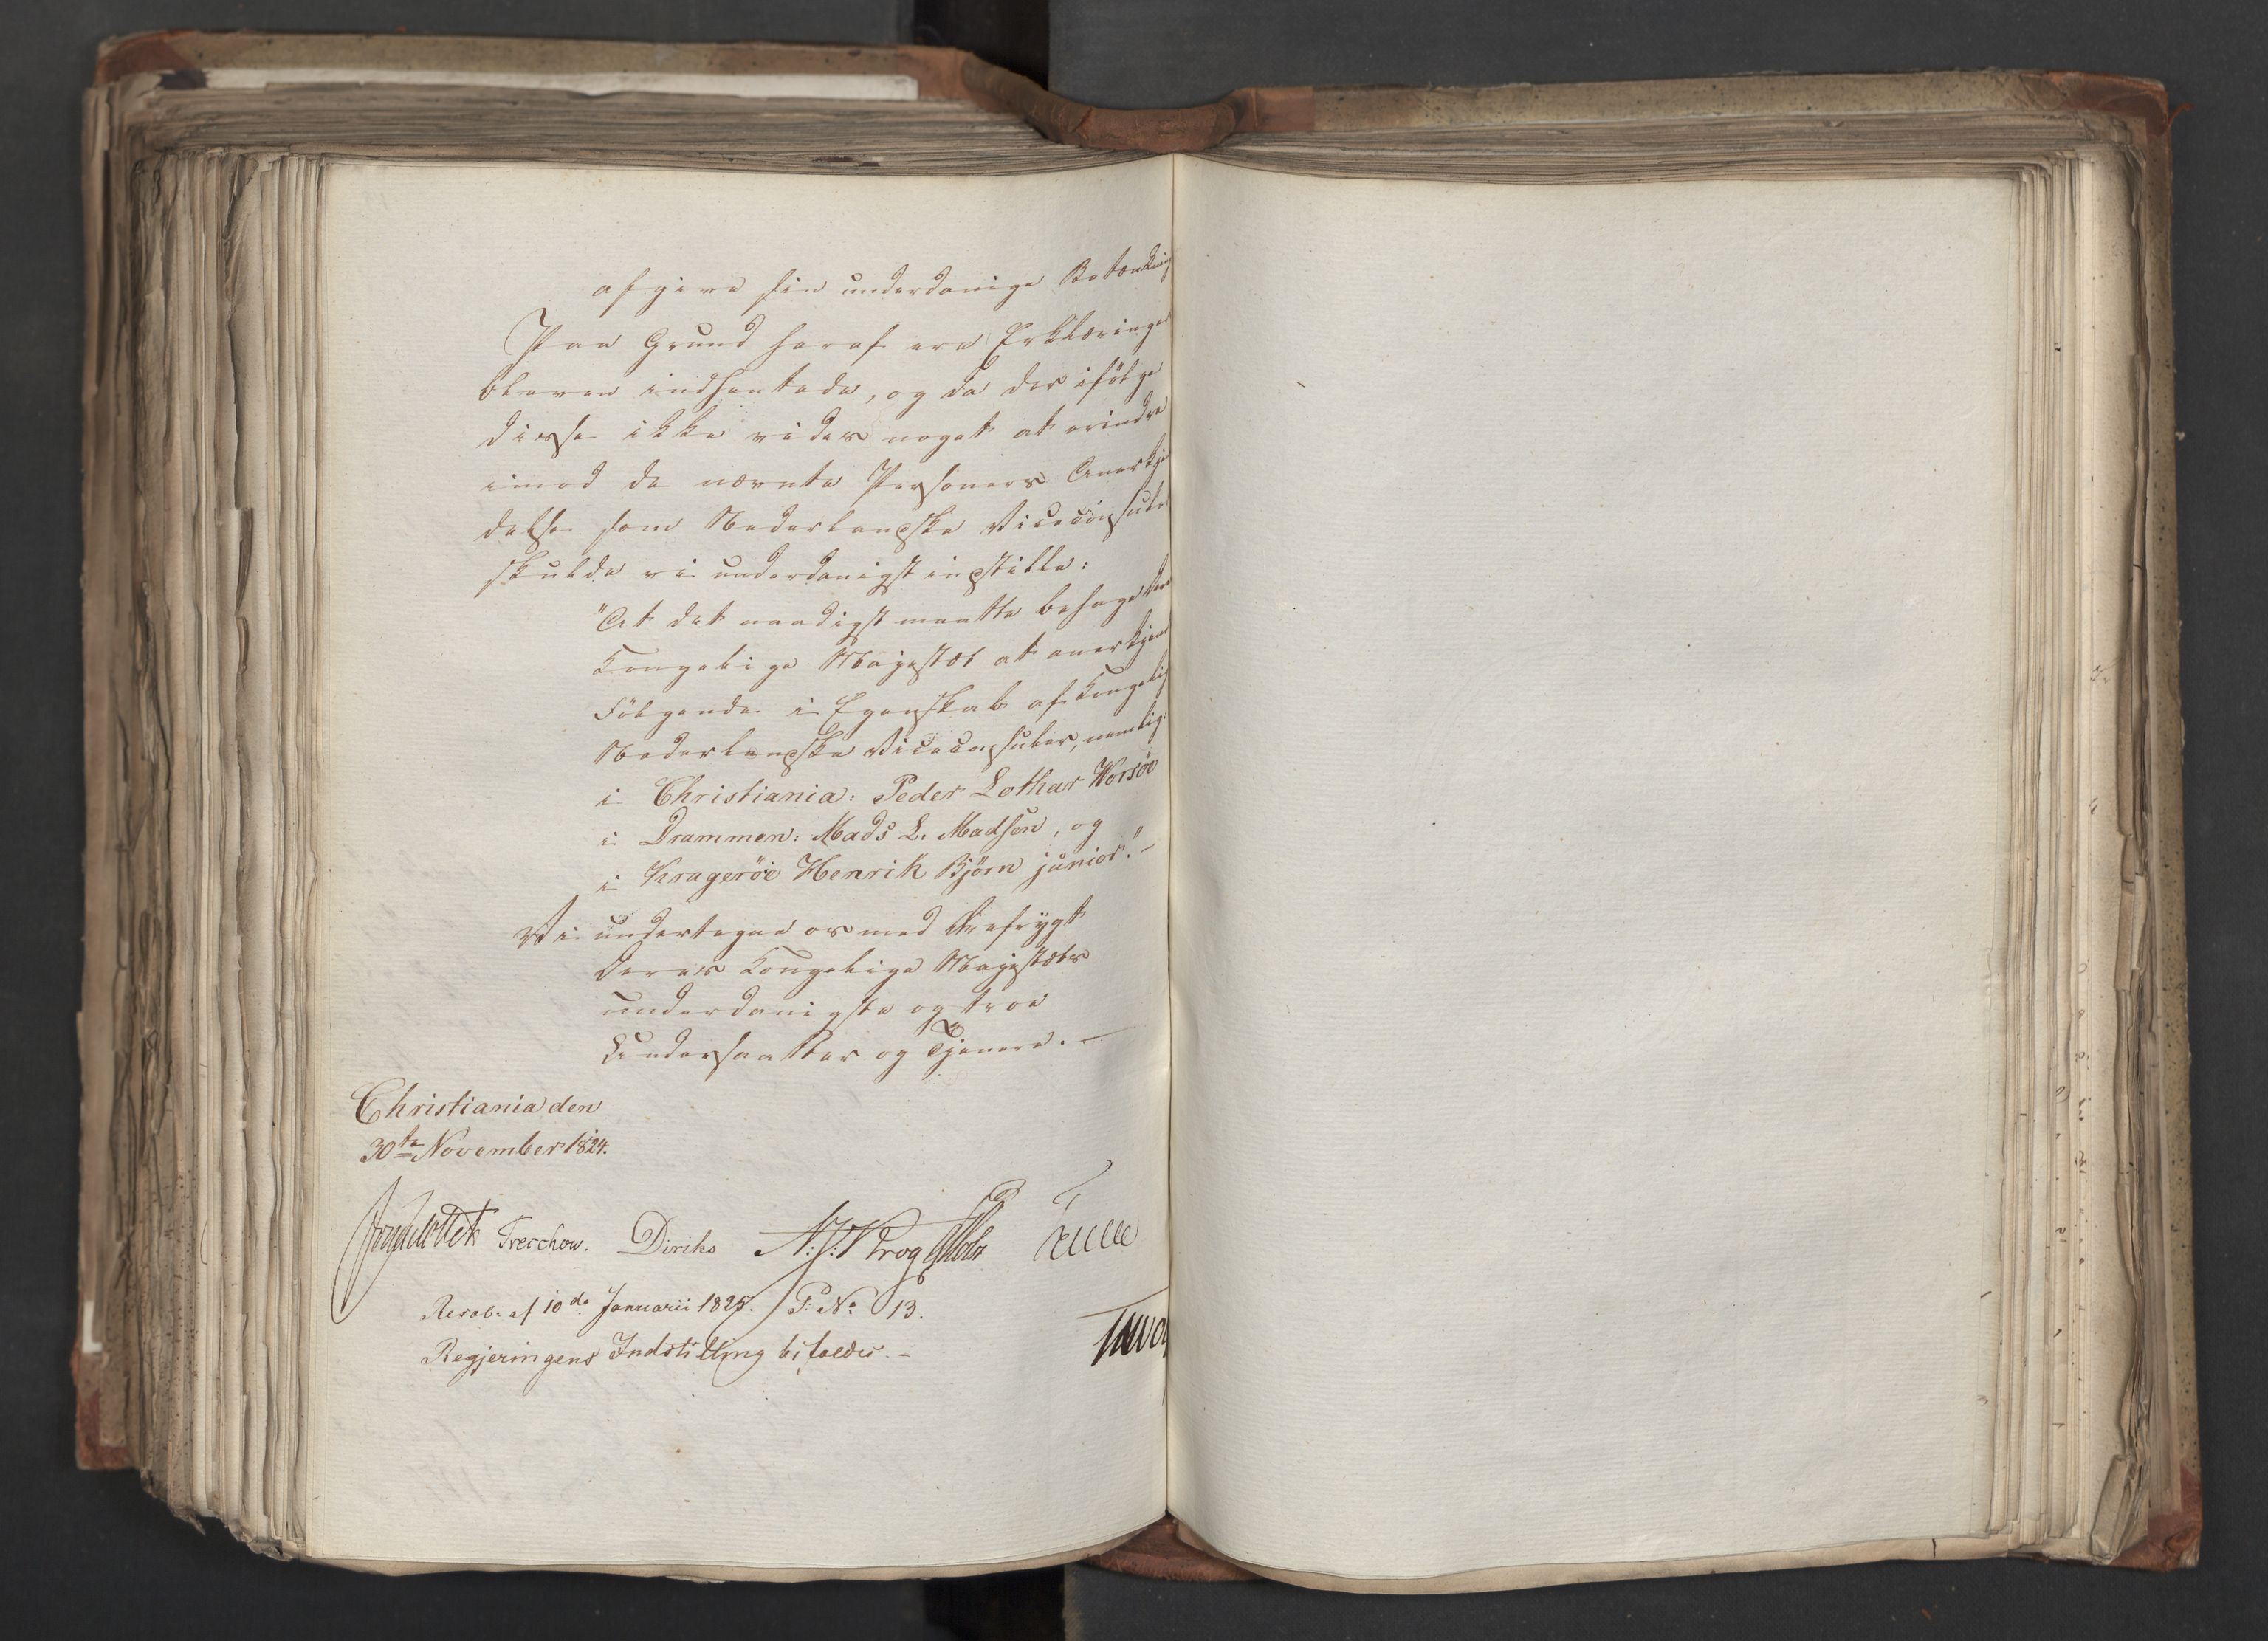 afgive sin underdanige Betænkning
Paa Grund heraf ere Erklæringer
blevne indhentede, og da der ifölge
disse ikke vides noget at erindre
imod de nævnte Personers Anerkjen
delse som Nederlandske Viceconsuler
skulde vi underdanigst indstille:
"At det naadigst maatte behage Deres
Kongelige Majestæt at anerkjende
Fölgende i Egenskab af Kongelig
Nederlandske Viceconsuler, nemlig:
i Christiania: Peder Lothar Worsöe
i Drammen: Mads L. Madsen, og
i Krageröe Henrik Björn junior."-
Vi undertegne os med Ærefrygt
Deres Kongelige Majestæts
underdanigste og troe
Undersaatter og Tjenere. -
Christiania den
30te November 1824.
Treschow. Diriks N: J: Krog
Resol: af 10de Januarii 1825. P: No 13.
Regjeringens Indstilling bifaldes. -